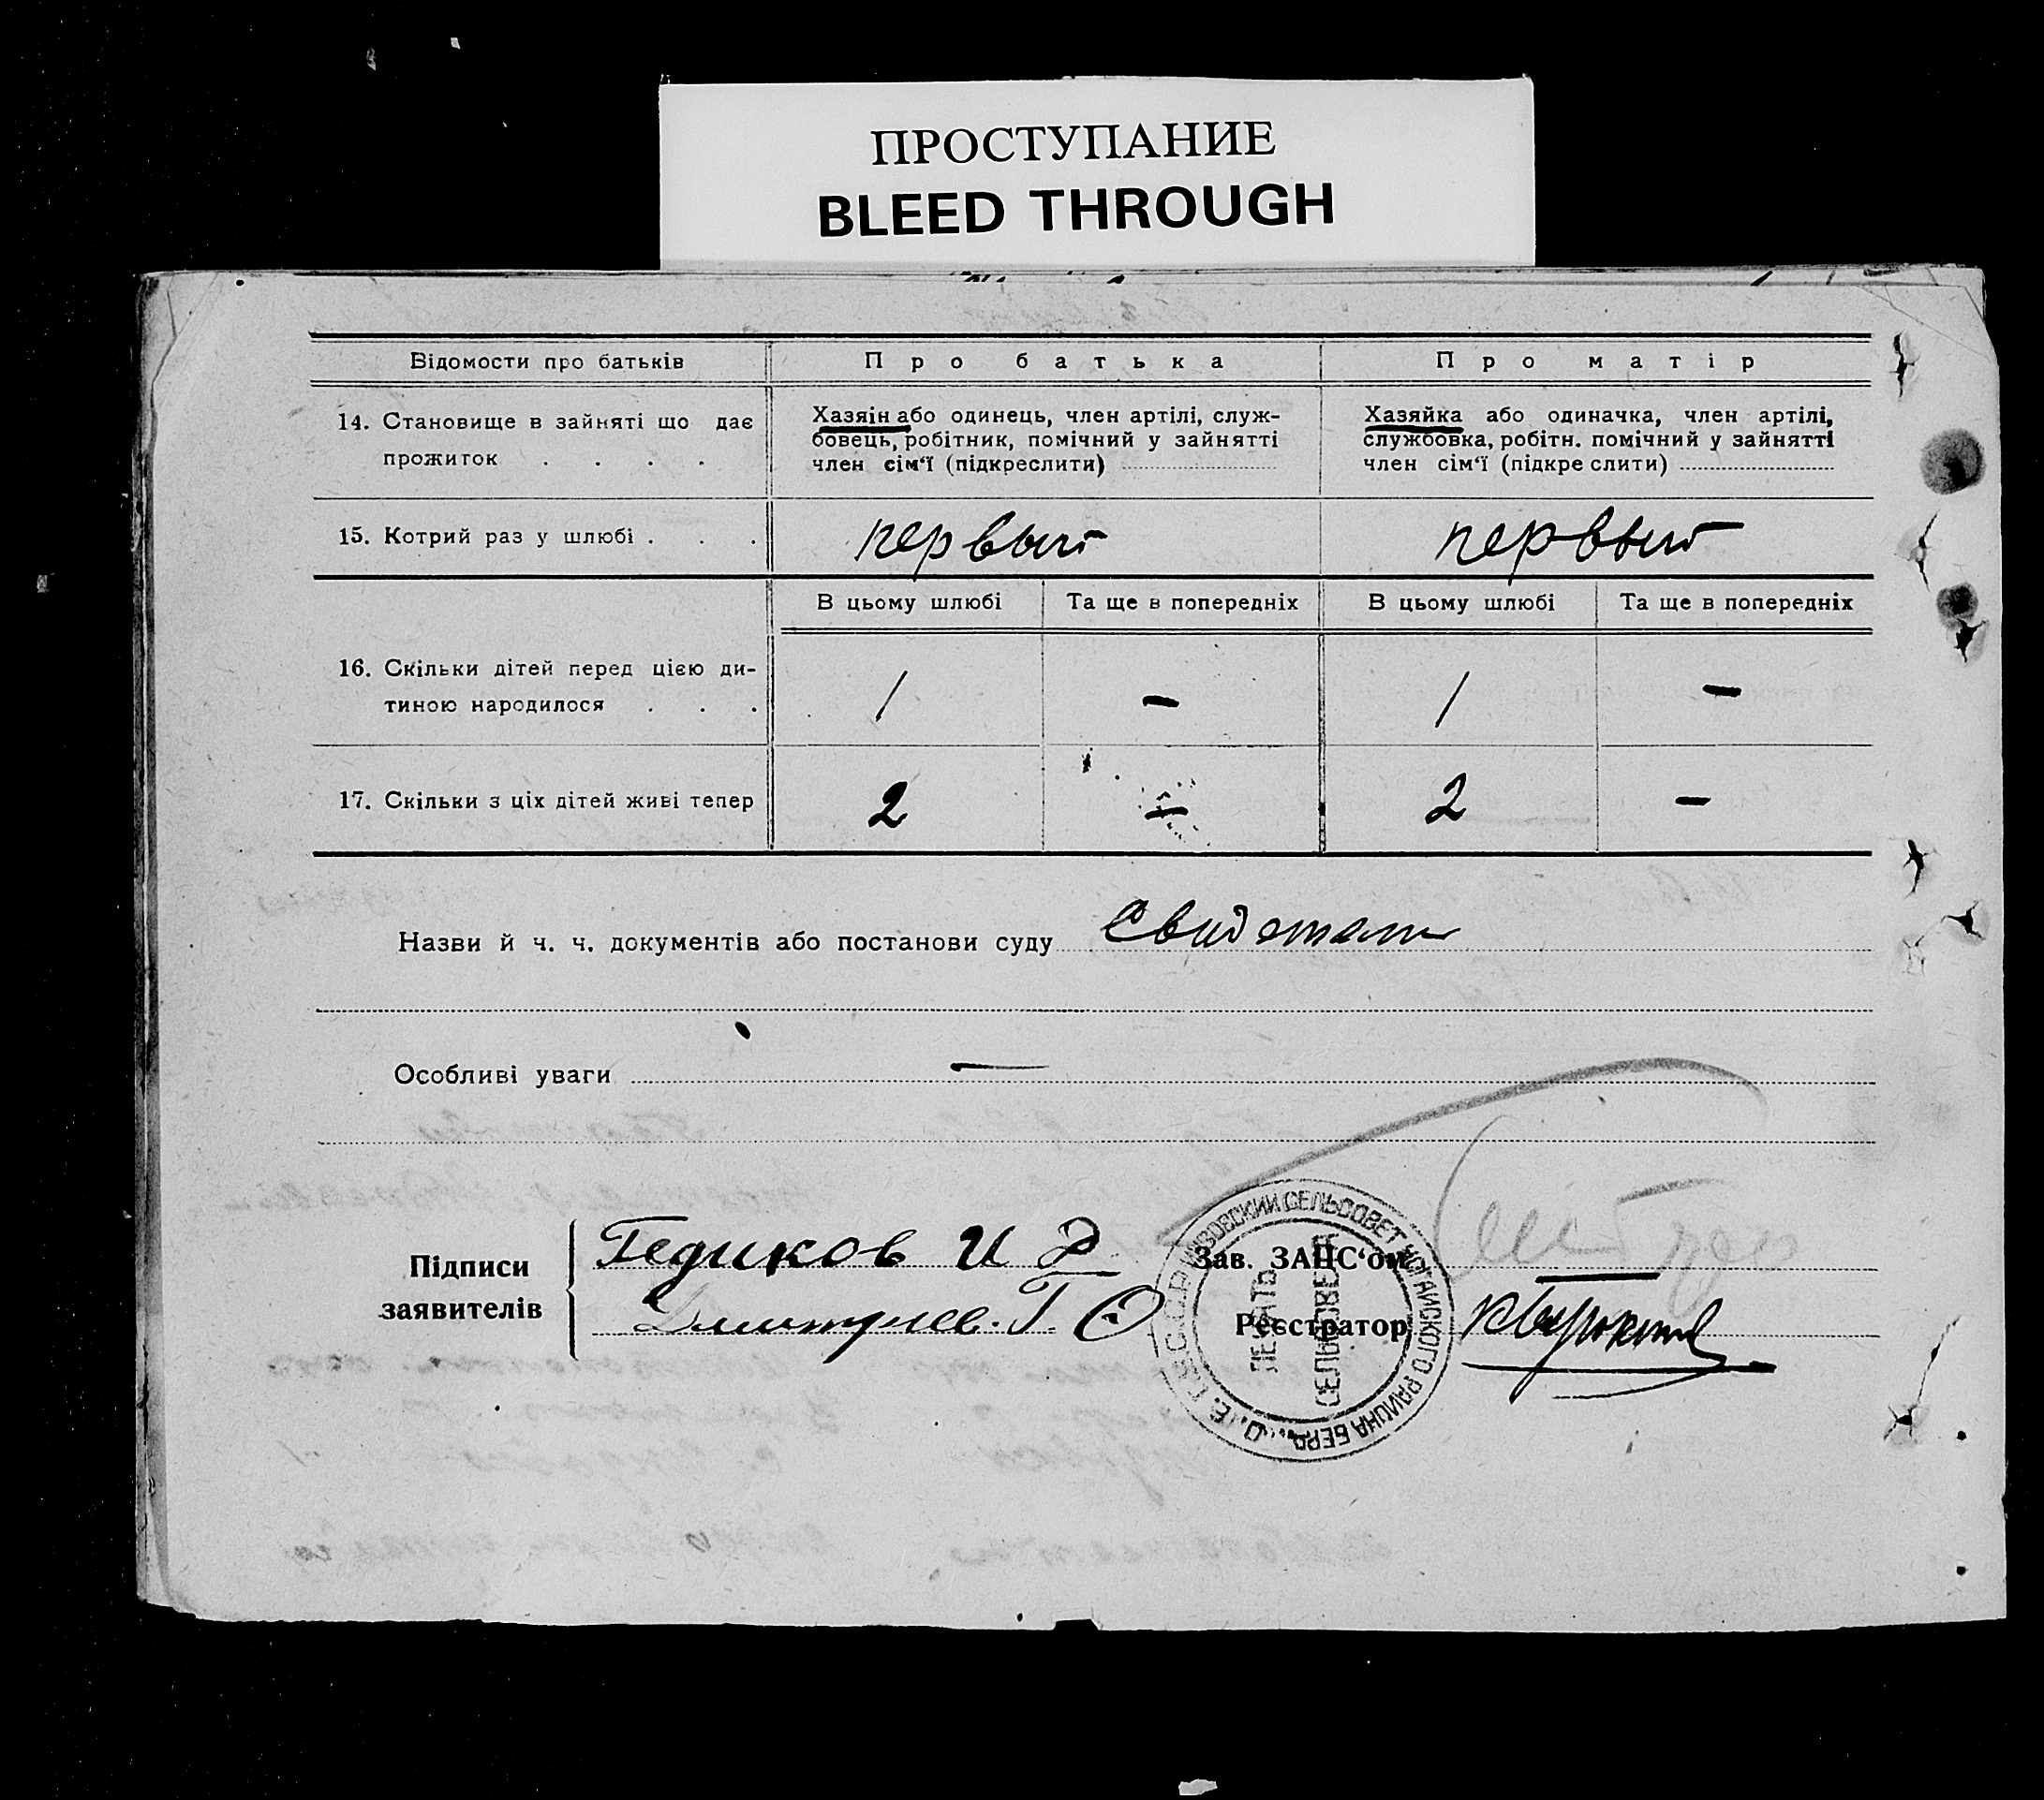 ПРОСТУПАНИЕ
BLEED THROUGH
Відомости про батьків
Про батька
Про матір
14. Становище в зайняті що дає
прожиток . . . .
Хазяін або одинець, член артілі, служ-
бовець, робітник, помічний у зайнятті
член сім‘ї (підкреслити)
Хазяйка або одиначка, член артілі,
службовка, робітн. помічний у зайнятті
член сім‘ї (підкреслити)
15. Котрий раз у шлюбі . . .
первый
первый
В цьому шлюбі
Та ще в попередніх
В цьому шлюбі
Та ще в попередніх
16. Скільки дітей перед цією ди-
тиною народилося . . .
1
—
1
—
17. Скільки з ціх дітей живі тепер
2
—
2
—
Назви й ч. ч. документів або постанови суду
Особливі уваги —
Підписи
заявителів
Гедиков И Д
Дмитриев. Г.
Зав. ЗАЦС‘ом
Реєстратор
СЕЛЬСОВЕТ НОГАЙСКОГО РАЙОНА БЕРД